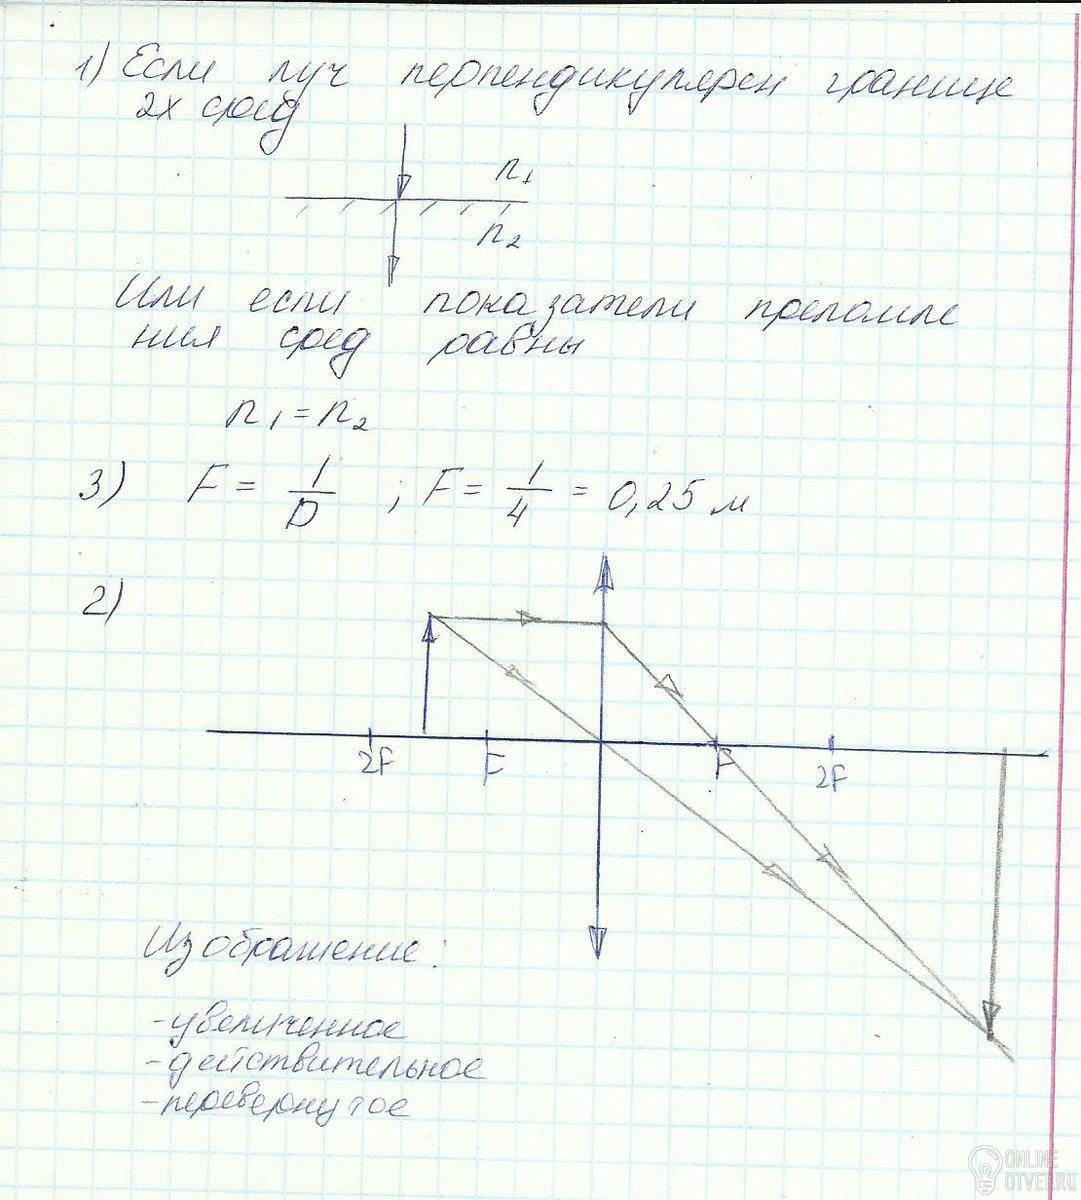 1) Если луч перпендикулярен границе
2х сред
n₁
n₂
Или если показатели преломле
ния сред равны
n₁ = n₂
3) F = 1/D ; F = 1/4 = 0,25 м
2)
2F F F 2F
Изображение:
- увеличенное
- действительное
- перевернутое
ONLINE
OTVET.RU